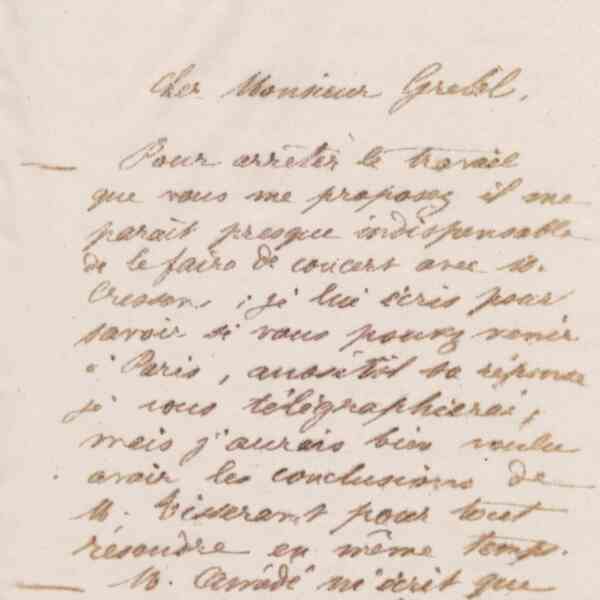 Cher Monsieur Grebel,
— Pour arrêter le travail
que vous me proposez il me
parait presque indispensable
de le faire de concert avec M.
Cresson, je lui écris pour
savoir si vous pouvez venir
à Paris, aussitôt sa réponse
je vous télégraphierai,
mais j'aurais bien voulu
avoir les conclusions de
M. Tisserant pour tout
résoudre en même temps.
— M. m'écrit que